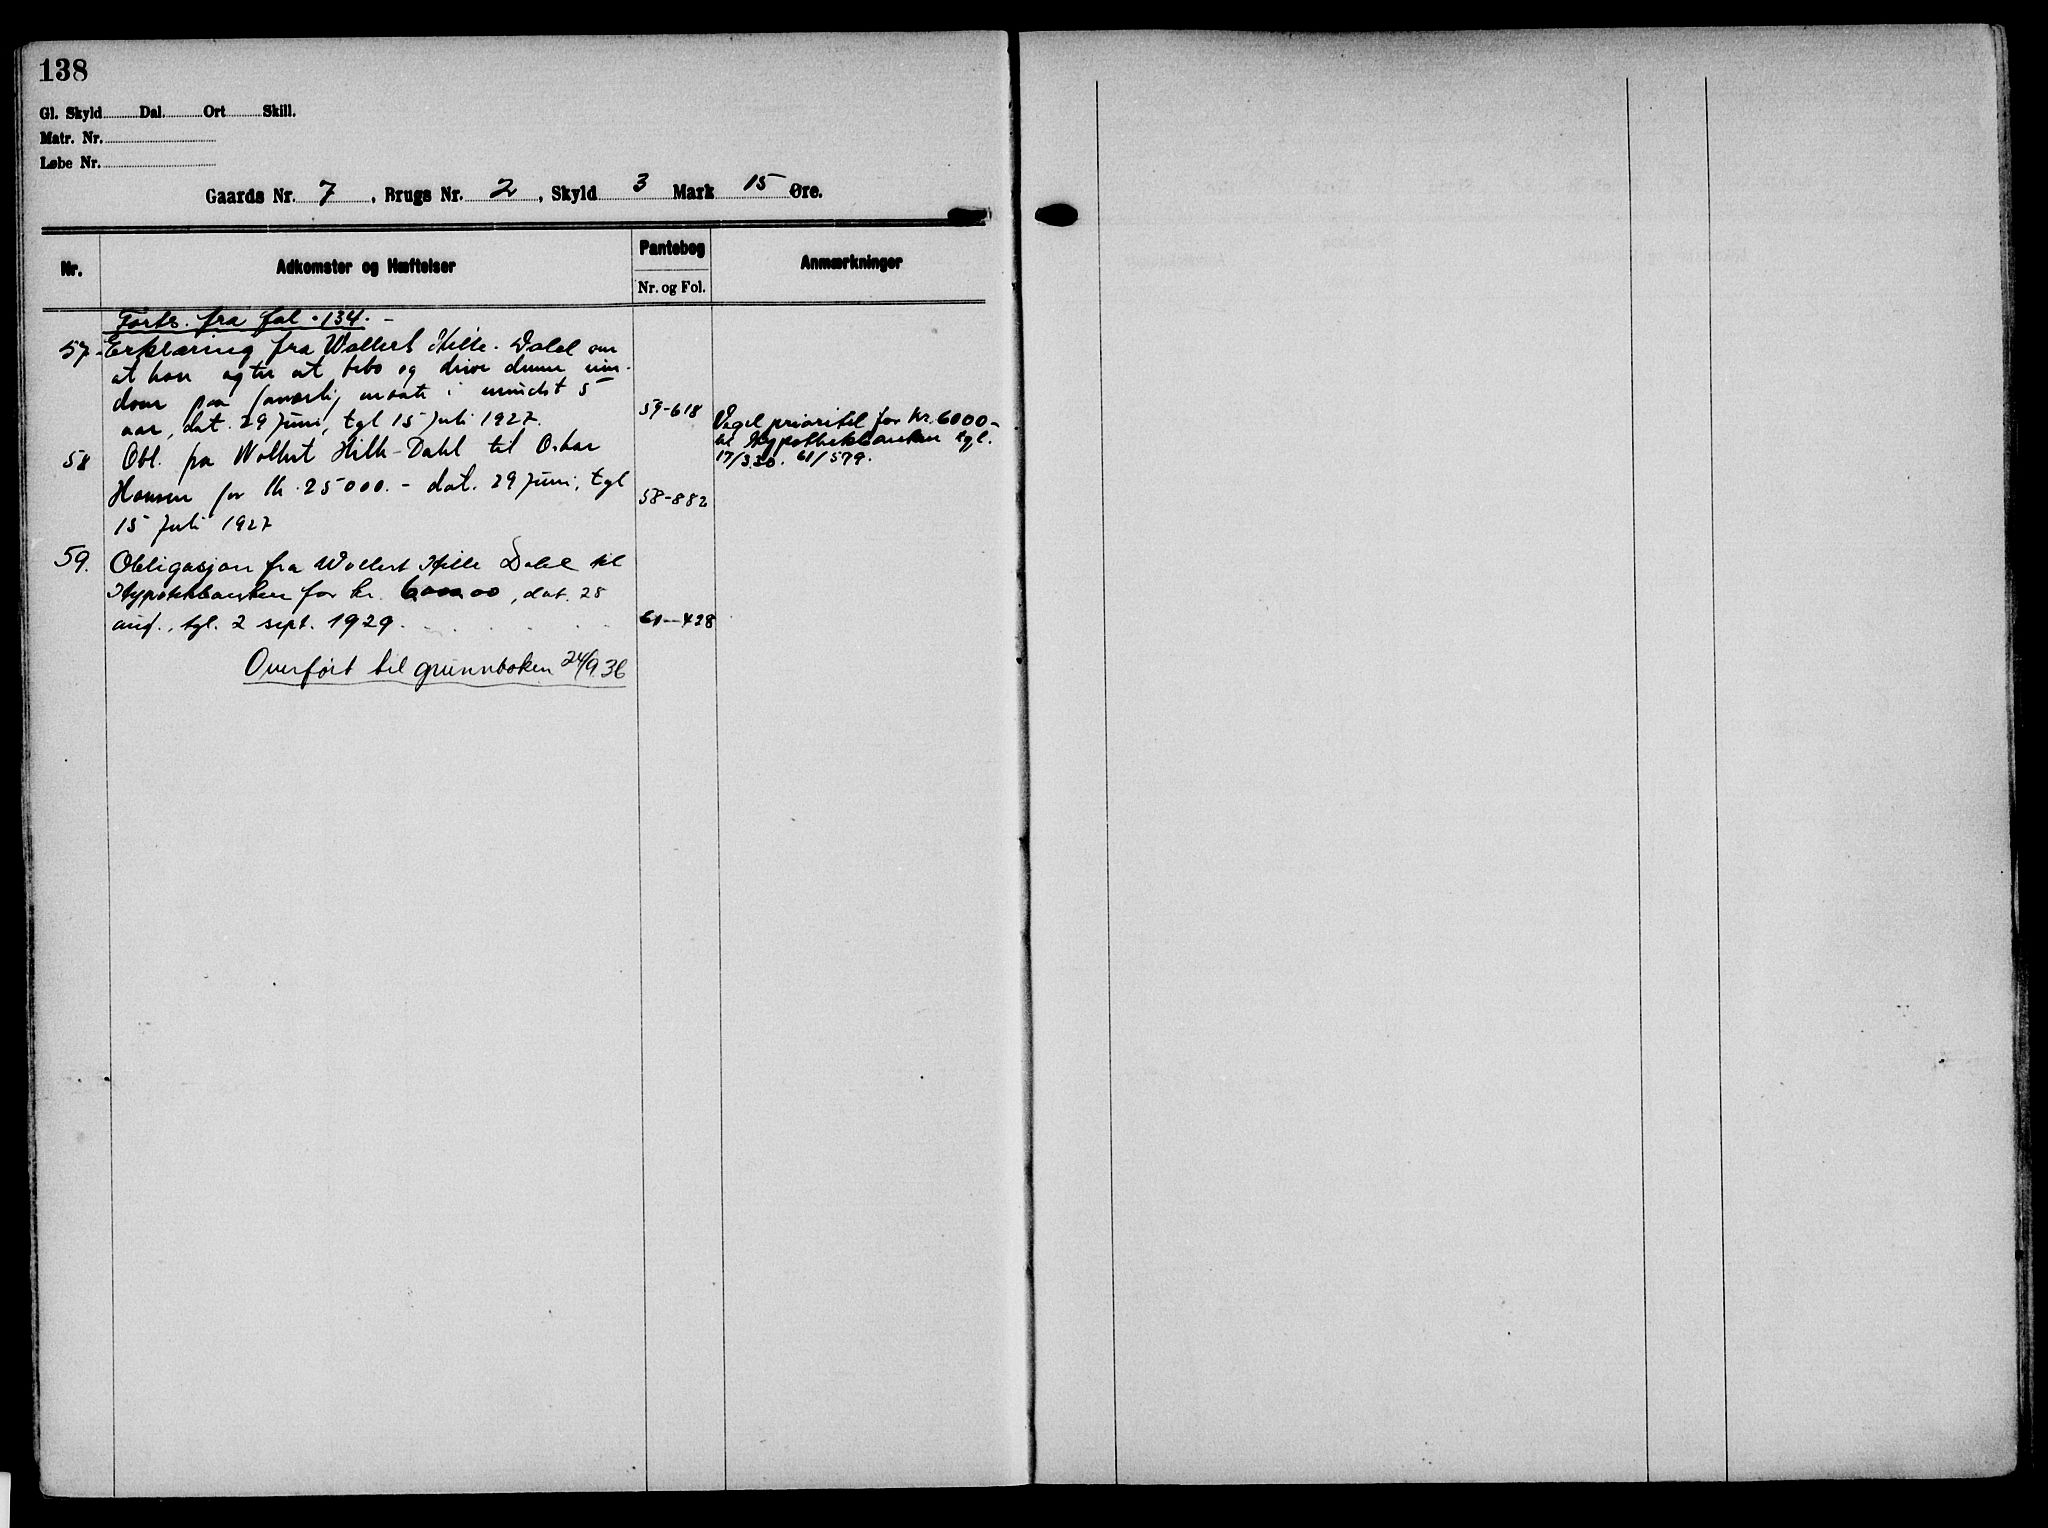 138
Gl. Skyld Dal. Ort Skill.
Matr. Nr.
Løbe Nr.
Gaards Nr. 7, Brugs Nr. 2, Skyld 3 Mark 15 Øre.
Nr. Adkomster og Hæftelser Pantebog Nr. og Fol. Anmærkninger
Forts. fra fol. 134. -
57 - Erklæring fra Wollert Hille-Dahl om
at han agter at bebo og drive denne eien-
dom paa forsvarlig maate i mindst 5
aar, dat. 29 Juni, tgl 15 Juli 1927. 59-618
58 Obl. fra Wollert Hille-Dahl til Oskar
Hansen for kr. 25000.- dat. 29 Juni, tgl 58-882
15 Juli 1927
Veget prioritet for kr. 6000-
til Hypothekbanken tgl.
17/3.30. 61/579.
59. Obligasjon fra Wollert Hille Dahl til
Hypotekbanken for kr. 6000.00, dat. 28
aug., tgl. 2 sept. 1929. 61-428
Overført til grunnboken 24/9.36